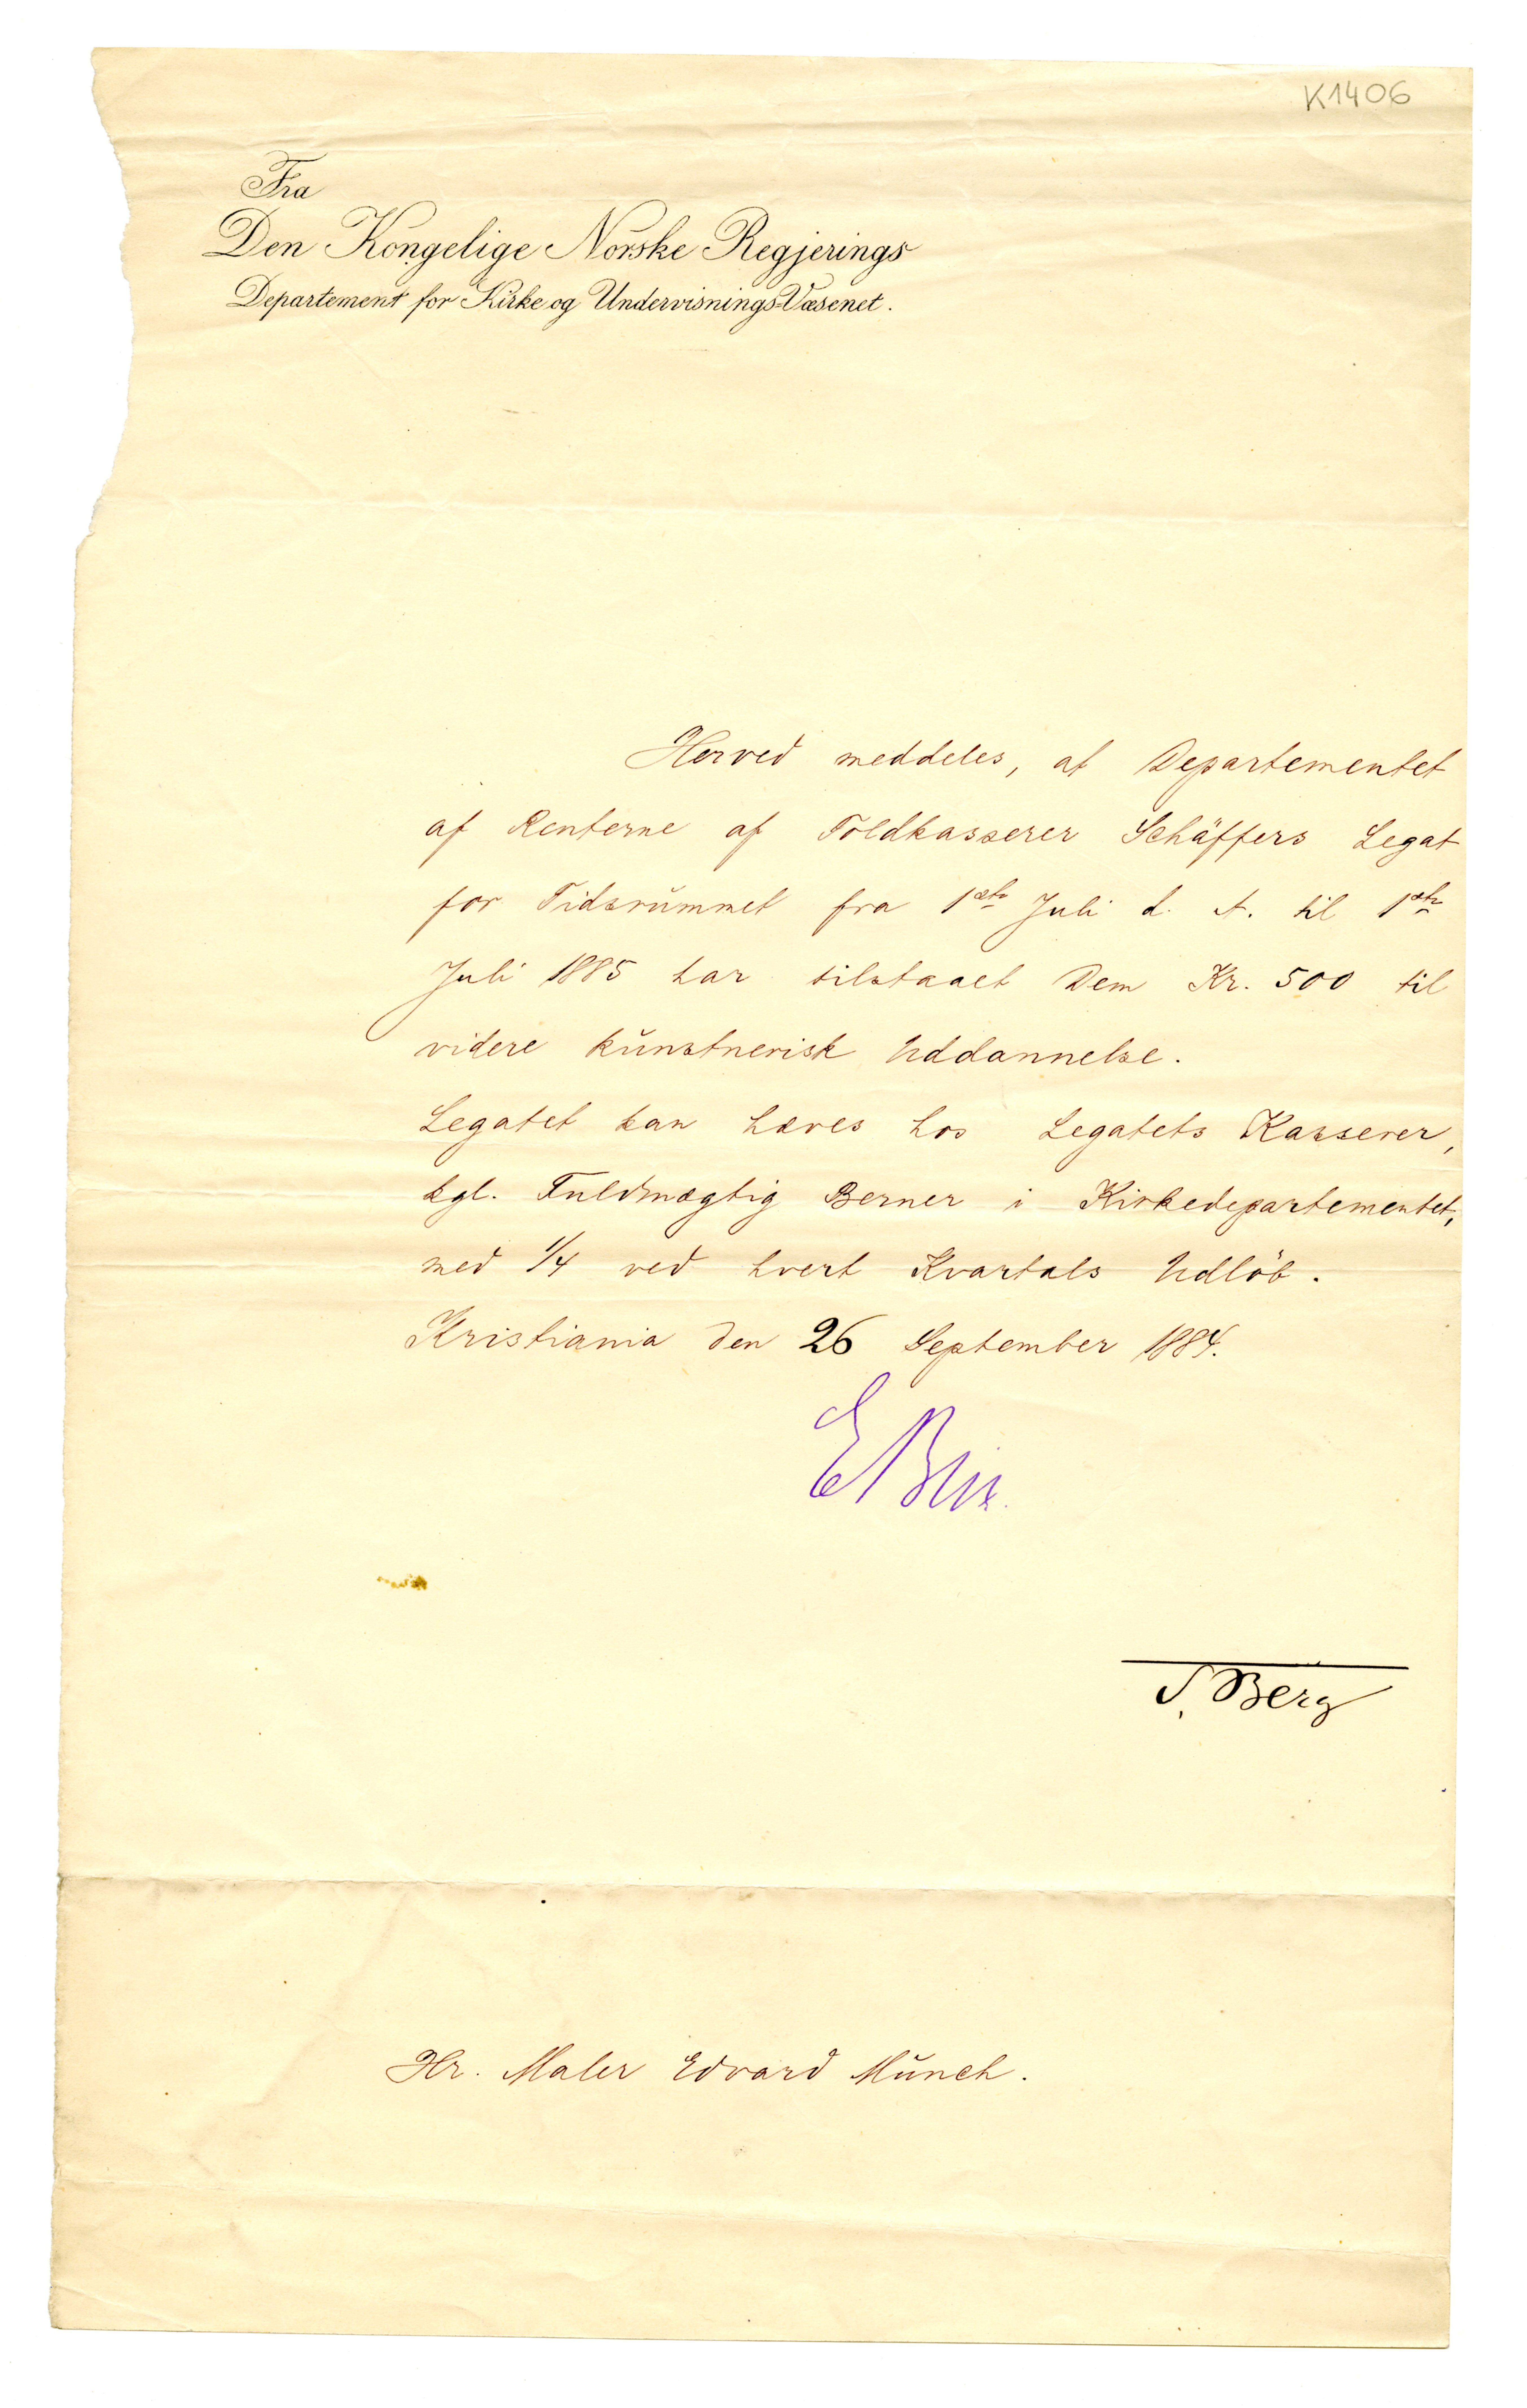 K1406
Fra
Den Kongelige Norske Regjerings
Departement for Kirke og Undervisnings-Væsenet.
Herved meddeles, at Departementet
af Renterne af Toldkasserer Schäffers Legat
for Tidsrummet fra 1ste Juli d. A. til 1ste
Juli 1885 har tilstaaet Dem Kr. 500 til
videre kunstnerisk Uddannelse.
Legatet kan hæves hos Legatets Kasserer,
kgl. Fuldmægtig Berner i Kirkedepartementet,
med 1/4 ved hvert Kvartals Udløb.
Kristiania den 26 September 1884.
E Blix.
S. Berg
Hr. Maler Edvard Munch.